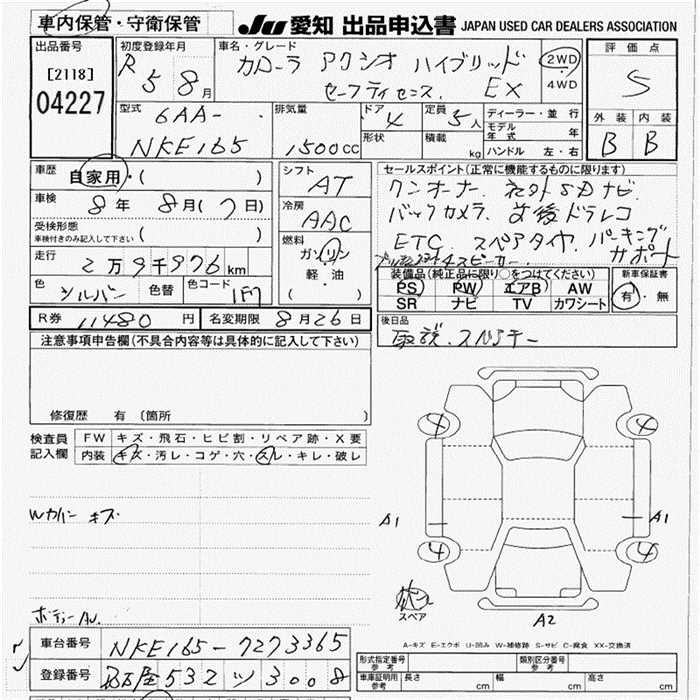 車内保管・守衛保管
JU 愛知 出品申込書 JAPAN USED CAR DEALERS ASSOCIATION
出品番号
[2118]
04227
初度登録年月
R 5 8月
車名・グレード
カローラ アクシオ ハイブリッド
セーフティセンス EX
2WD
・
4WD
評価点
S
外装 内装
B B
型式
6AA-
NKE165
排気量
1500cc
ドア
4
形状
定員
5人
積載
kg
ディーラー・並行
モデル年式 年
ハンドル 左・右
車歴
自家用・( )
車検
8年 8月(7日)
受検形態
車検付きのみ記入して下さい ( )
走行
2万9千976km
色 シルバー 色替 色コード 1F7
シフト
AT
冷房
AAC
燃料
ガソリン
軽・油
( )
セールスポイント(正常に機能するものに限ります)
ワンオーナー. ナビ
バックカメラ. 前後ドラレコ
ETC. スペアタイヤ. パーキング
サポート
4スピーカー
装備品(純正品に限り○をつけてください)
PS PW エアB AW
SR ナビ TV カワシート
新車保証書
有・無
R券 11480円 名変期限 8月26日
後日品
取説. スペアキー
注意事項申告欄(不具合内容等は具体的に記入して下さい)
修復歴 有 〔箇所 〕
検査員
記入欄
FW キズ・飛石・ヒビ割・リペア跡・X要
内装 キズ・汚レ・コゲ・穴・スレ・キレ・破レ
Wカバー キズ
4 4
A1 A1
4 4
スペア
A2
ボディーAU.
A-キズ E-エクボ U-凹み W-補修跡 S-サビ C-腐食 XX-交換済
車台番号 NKE165-7273365
登録番号 名古屋532ツ3008
形式指定番号
参考
類別区分番号
参考
車庫証明用
参考
長さ cm 幅 cm 高さ cm